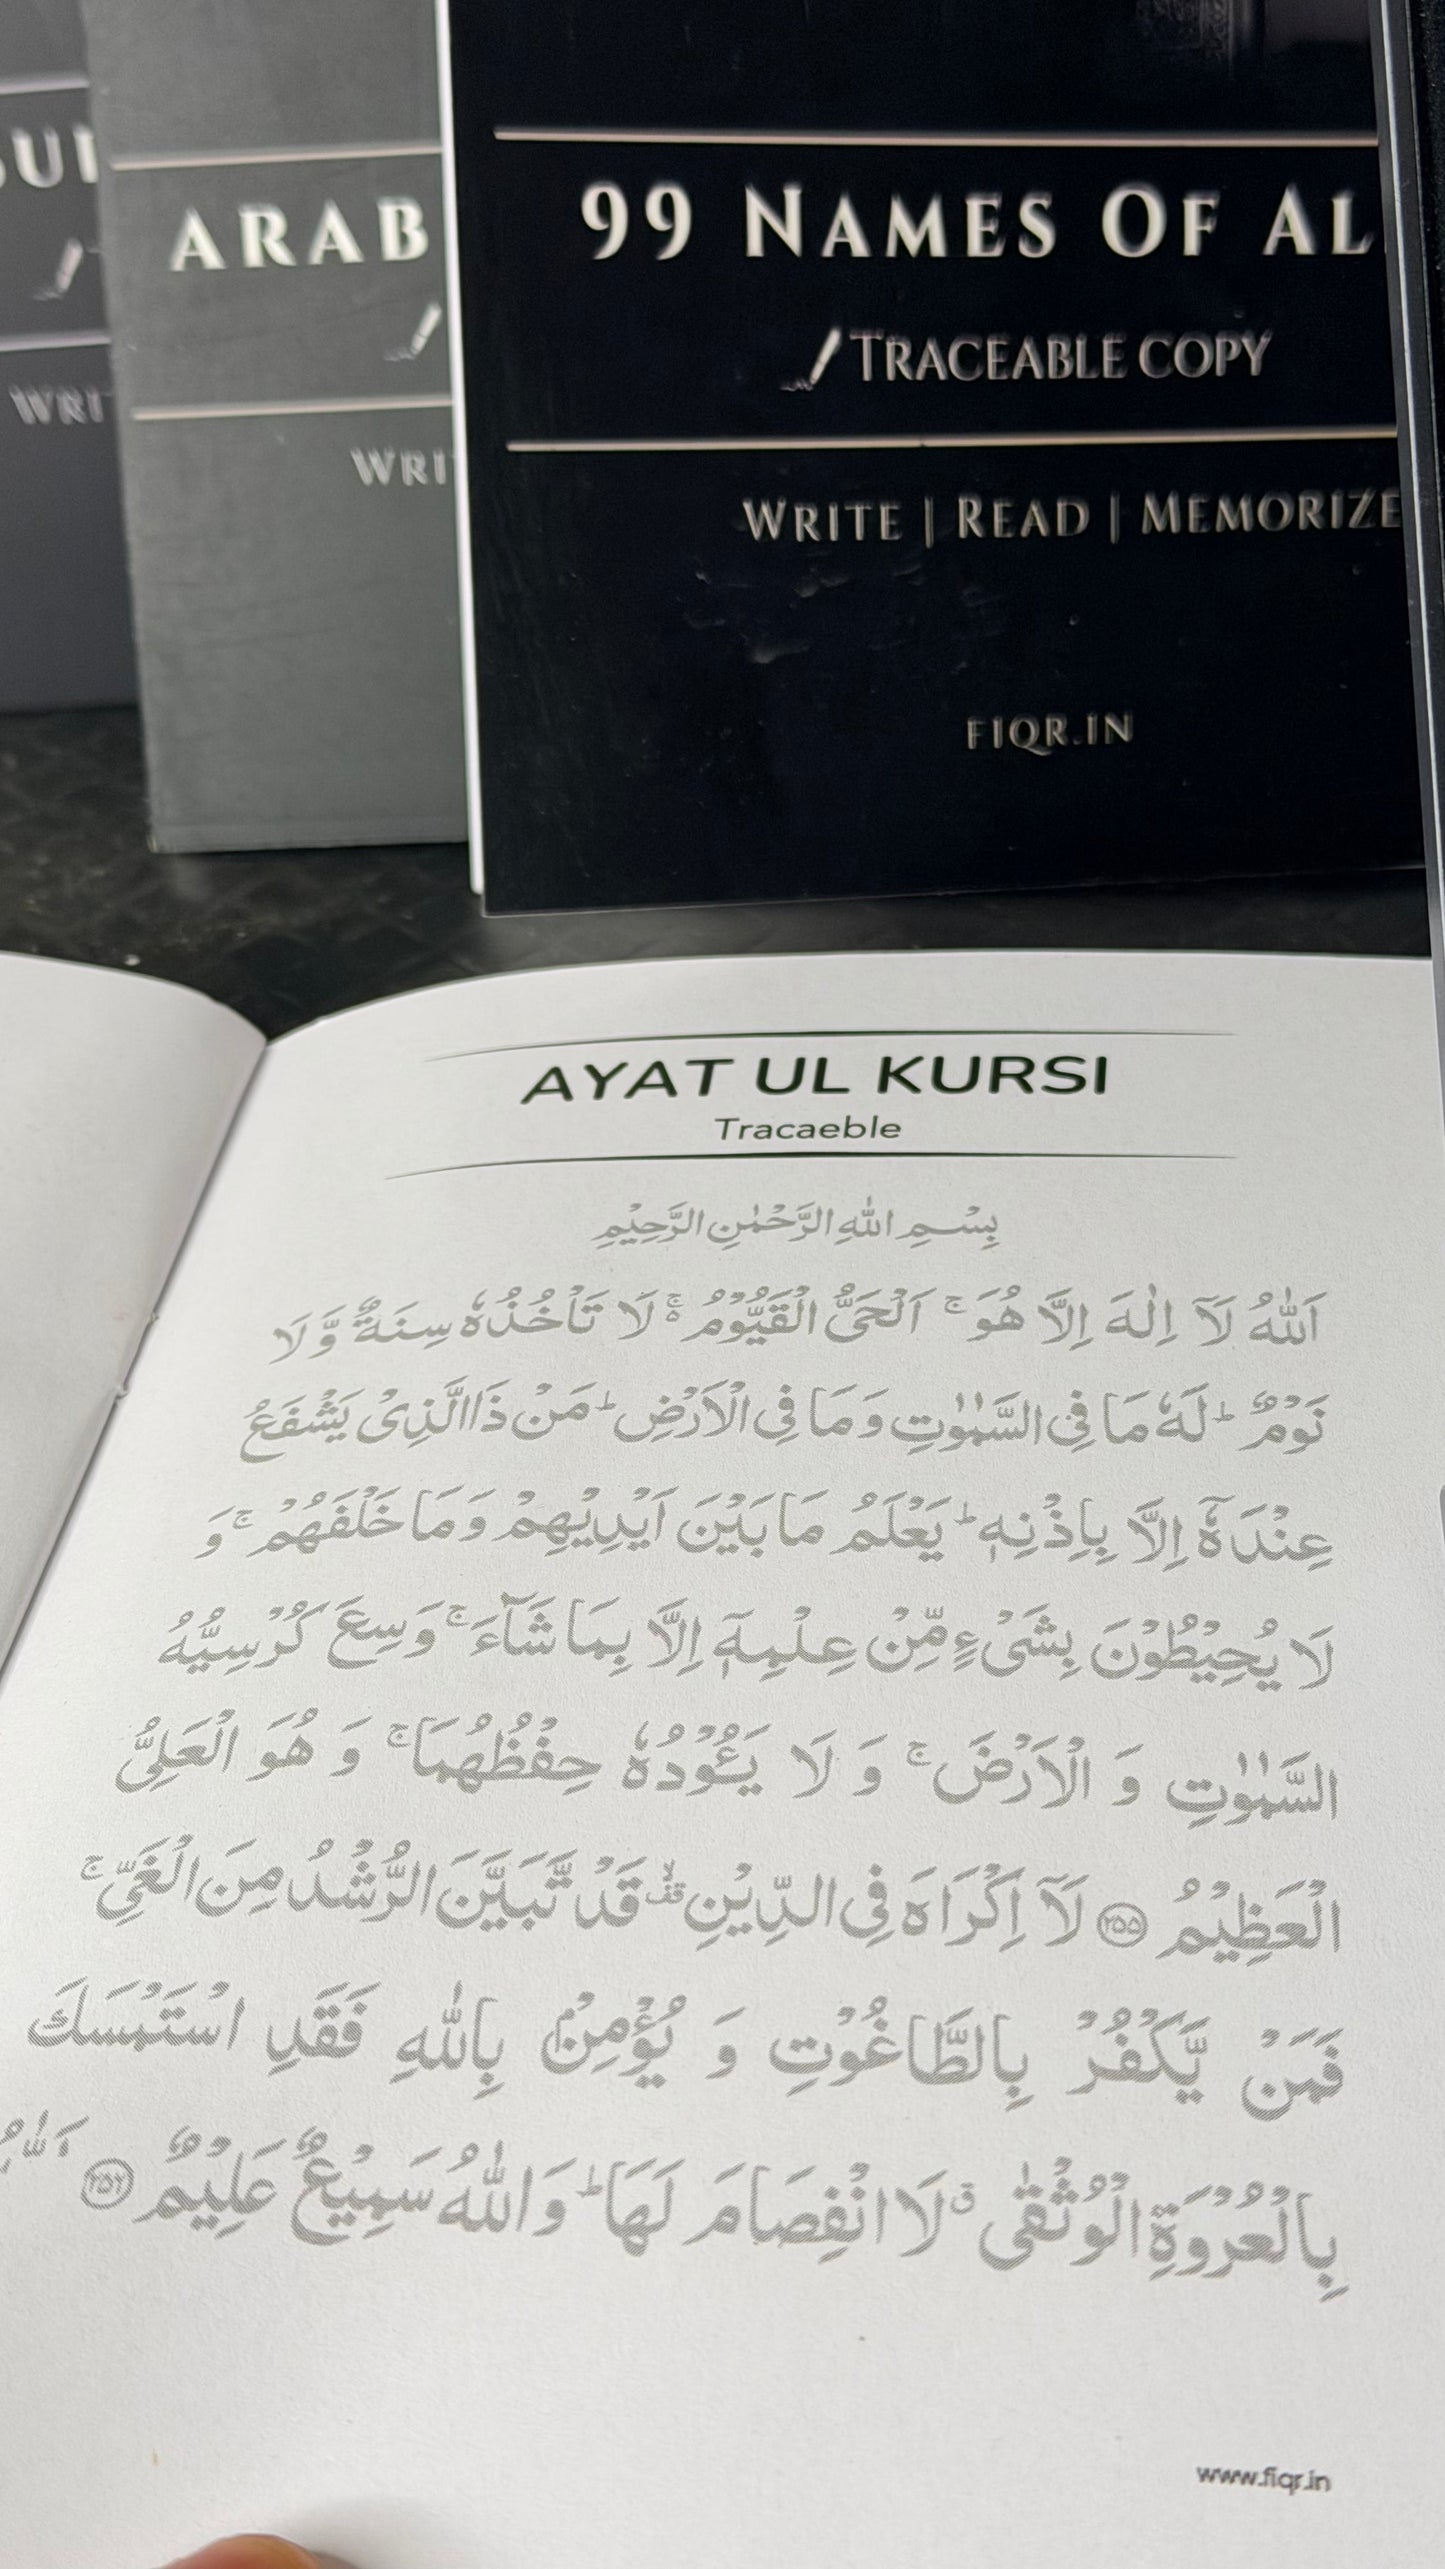 SUR
WRI
ARAB
WRI
99 NAMES OF AL
TRACEABLE COPY
WRITE | READ | MEMORIZE
FIQR.IN
AYAT UL KURSI
Tracaeble
بِسْمِ اللهِ الرَّحْمٰنِ الرَّحِيْمِ
اَللّٰهُ لَآ اِلٰهَ اِلَّا هُوَ ۚ اَلْحَىُّ الْقَيُّوْمُ ۚ۬ لَا تَاْخُذُهٗ سِنَةٌ وَّ لَا
نَوْمٌ ؕ لَهٗ مَا فِى السَّمٰوٰتِ وَ مَا فِى الْاَرْضِ ؕ مَنْ ذَا الَّذِىْ يَشْفَعُ
عِنْدَهٗۤ اِلَّا بِاِذْنِهٖ ؕ يَعْلَمُ مَا بَيْنَ اَيْدِيْهِمْ وَ مَا خَلْفَهُمْ ۚ وَ
لَا يُحِيْطُوْنَ بِشَىْءٍ مِّنْ عِلْمِهٖۤ اِلَّا بِمَا شَآءَ ۚ وَسِعَ كُرْسِيُّهُ
السَّمٰوٰتِ وَ الْاَرْضَ ۚ وَ لَا يَـُٔوْدُهٗ حِفْظُهُمَا ۚ وَ هُوَ الْعَلِىُّ
الْعَظِيْمُ ﴿۲۵۵﴾ لَآ اِكْرَاهَ فِى الدِّيْنِ ۟ۙ قَدْ تَّبَيَّنَ الرُّشْدُ مِنَ الْغَىِّ ۚ
فَمَنْ يَّكْفُرْ بِالطَّاغُوْتِ وَ يُؤْمِنْۢ بِاللّٰهِ فَقَدِ اسْتَمْسَكَ
بِالْعُرْوَةِ الْوُثْقٰى ۗ لَا انْفِصَامَ لَهَا ؕ وَ اللّٰهُ سَمِيْعٌ عَلِيْمٌ ﴿۲۵۶﴾ اَللّٰهُ
www.fiqr.in